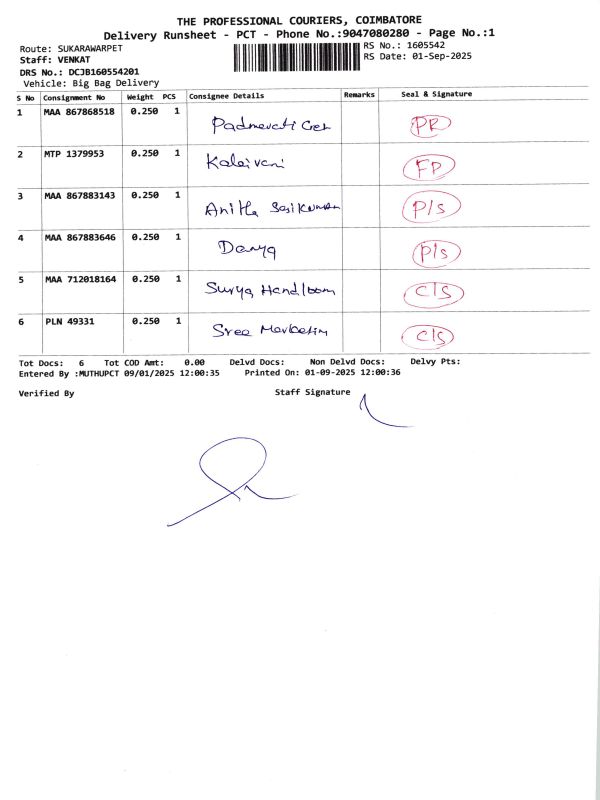 THE PROFESSIONAL COURIERS, COIMBATORE
Delivery Runsheet - PCT - Phone No.:9047080280 - Page No.:1
Route: SUKARAWARPET RS No.: 1605542
Staff: VENKAT RS Date: 01-Sep-2025
DRS No.: DCJB160554201
Vehicle: Big Bag Delivery
S No Consignment No Weight PCS Consignee Details Remarks Seal & Signature
1 MAA 867868518 0.250 1 Padmavati PR
2 MTP 1379953 0.250 1 Kalaivani FP
3 MAA 867883143 0.250 1 Anitha Sasikumar P/s
4 MAA 867883646 0.250 1 P/s
5 MAA 712018164 0.250 1 Surya Handloom C/S
6 PLN 49331 0.250 1 Sree Marketing C/S
Tot Docs: 6 Tot COD Amt: 0.00 Delvd Docs: Non Delvd Docs: Delvy Pts:
Entered By :MUTHUPCT 09/01/2025 12:00:35 Printed On: 01-09-2025 12:00:36
Verified By Staff Signature